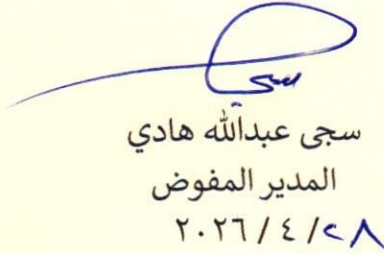 سجى
سجى عبدالله هادي
المدير المفوض
٢٠٢٦ / ٤ / ٢٨